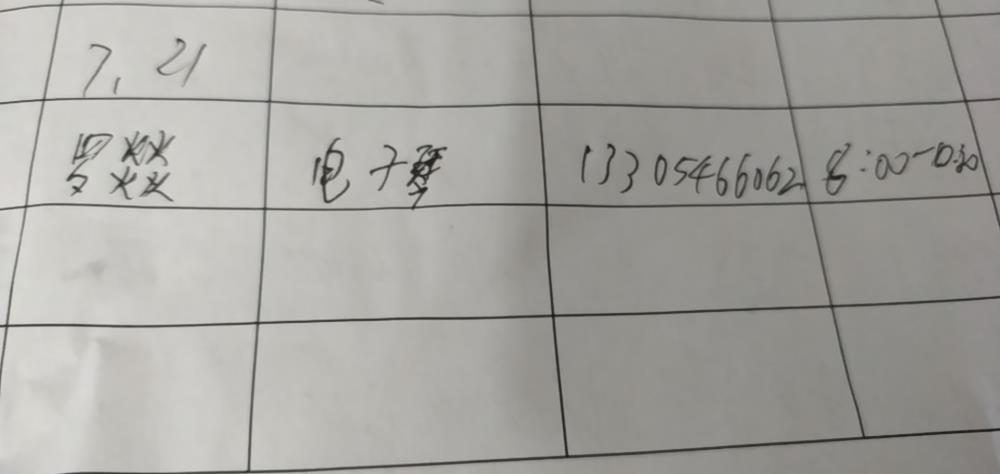 7.21
罗燚 电子琴 13305466062 8:00-10:30